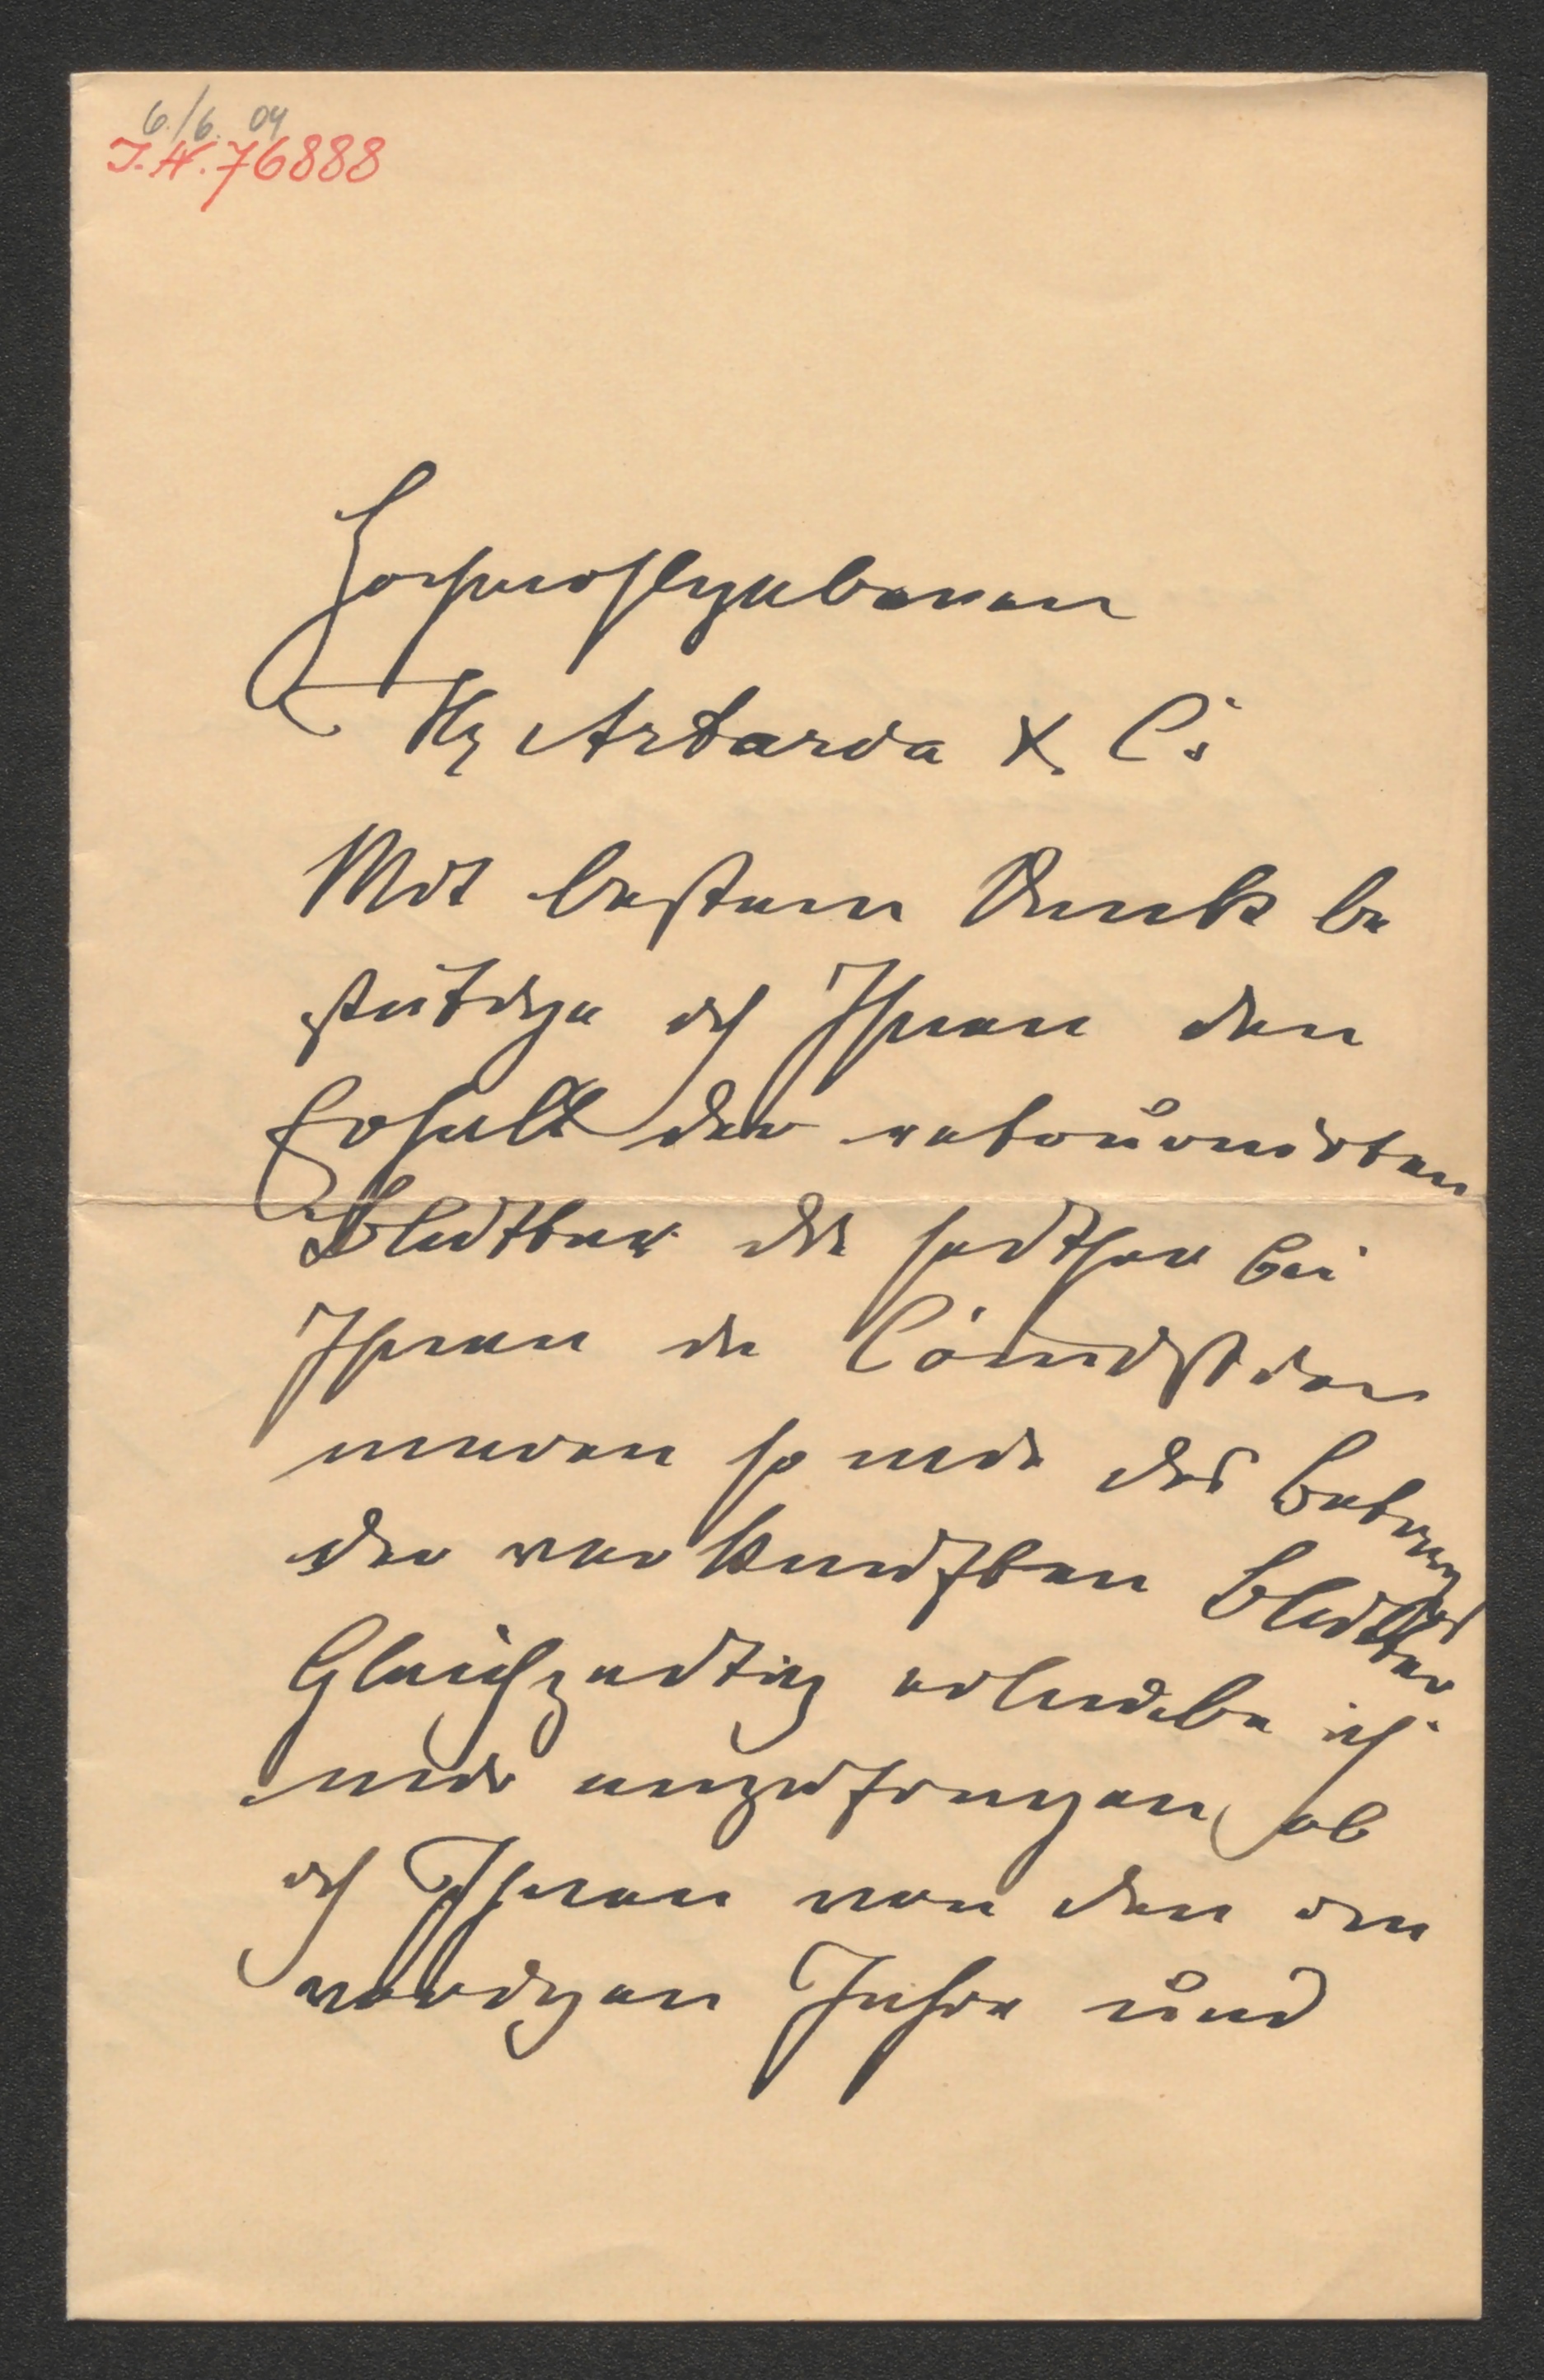 6./6. 04
I.N. 76888
Hochwohlgeboren
Hr Artaria & Co
Mit bestem Dank be
stätige ich Ihnen den
Erhalt der retournirten
Blätter die seither bei
Ihnen in Com̄ission
waren so wie des Betrages
der verkauften Blätter
Gleichzeitig erlaube ich
mir anzufragen, ob
ich Ihnen von den im
vorigen Jahre und